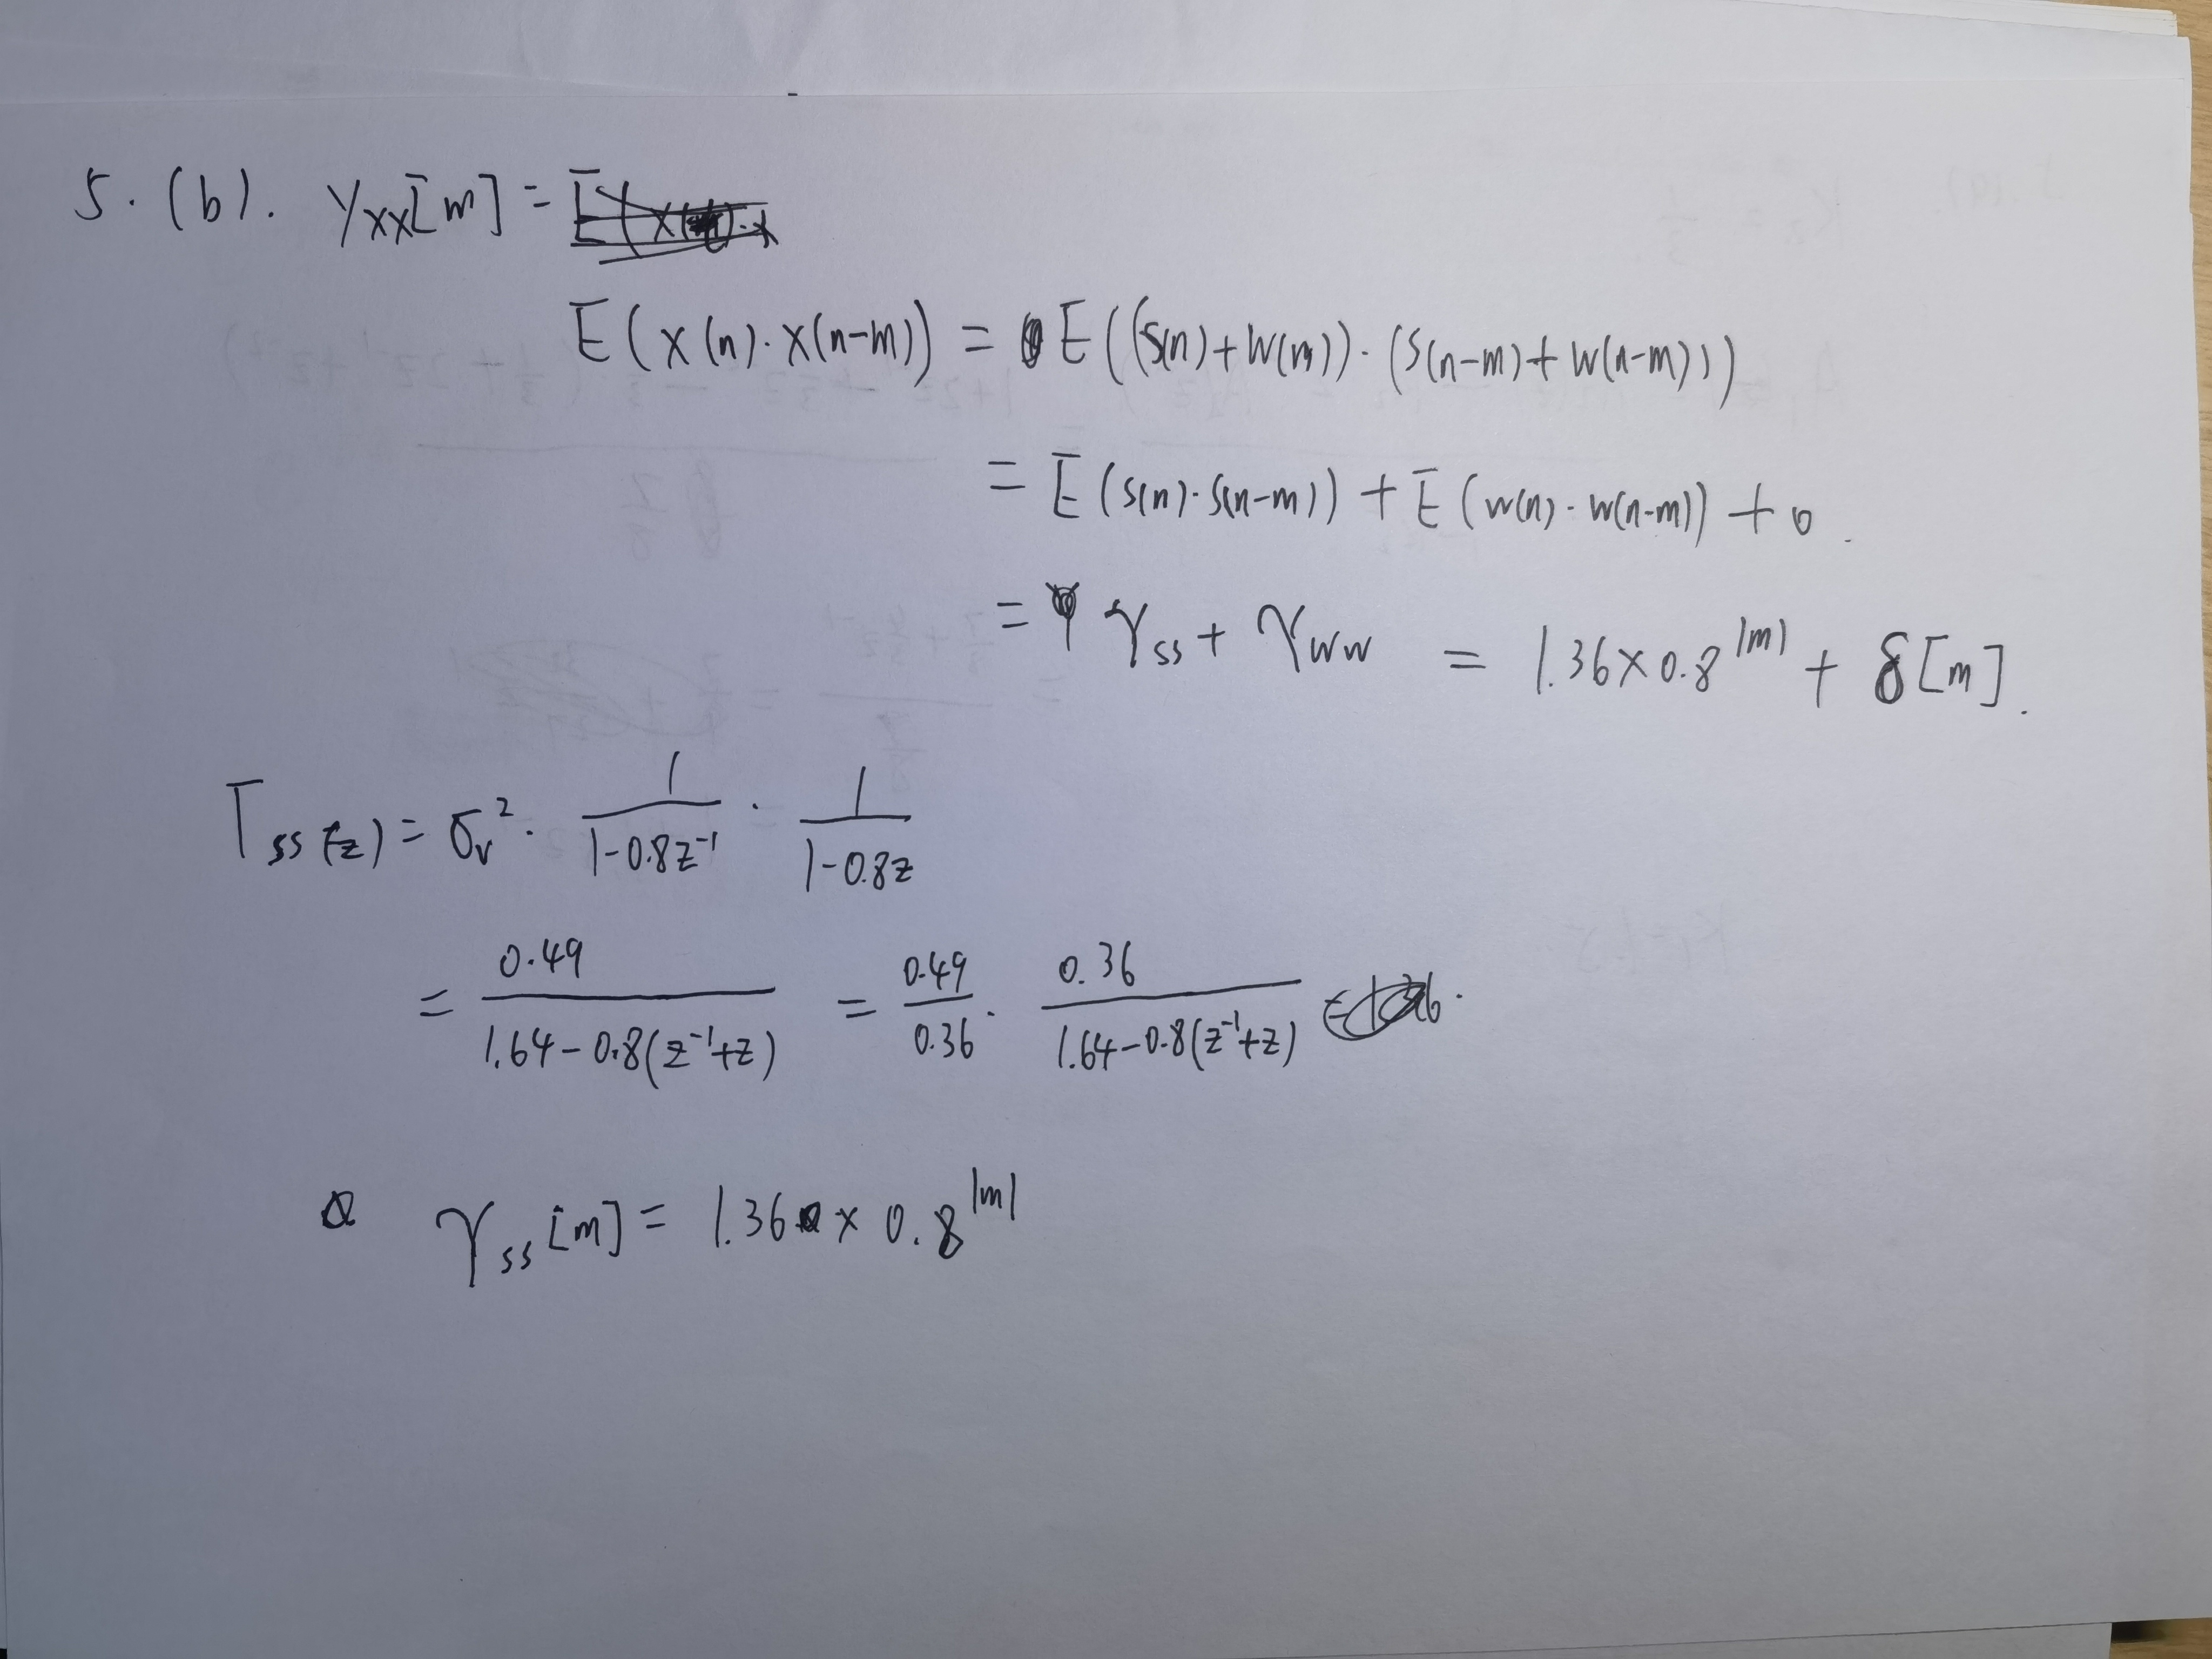 5. (b). γxx[m] =
E(x(n)·x(n-m)) = E((s(n)+w(n))·(s(n-m)+w(n-m)))
= E(s(n)·s(n-m)) + E(w(n)·w(n-m)) + 0.
= γss + γww = 1.36×0.8^|m| + δ[m].
Γss(z) = σv²· 1/(1-0.8z⁻¹) · 1/(1-0.8z)
= 0.49/(1.64-0.8(z⁻¹+z)) = 0.49/0.36 · 0.36/(1.64-0.8(z⁻¹+z))
γss[m] = 1.36 × 0.8^|m|